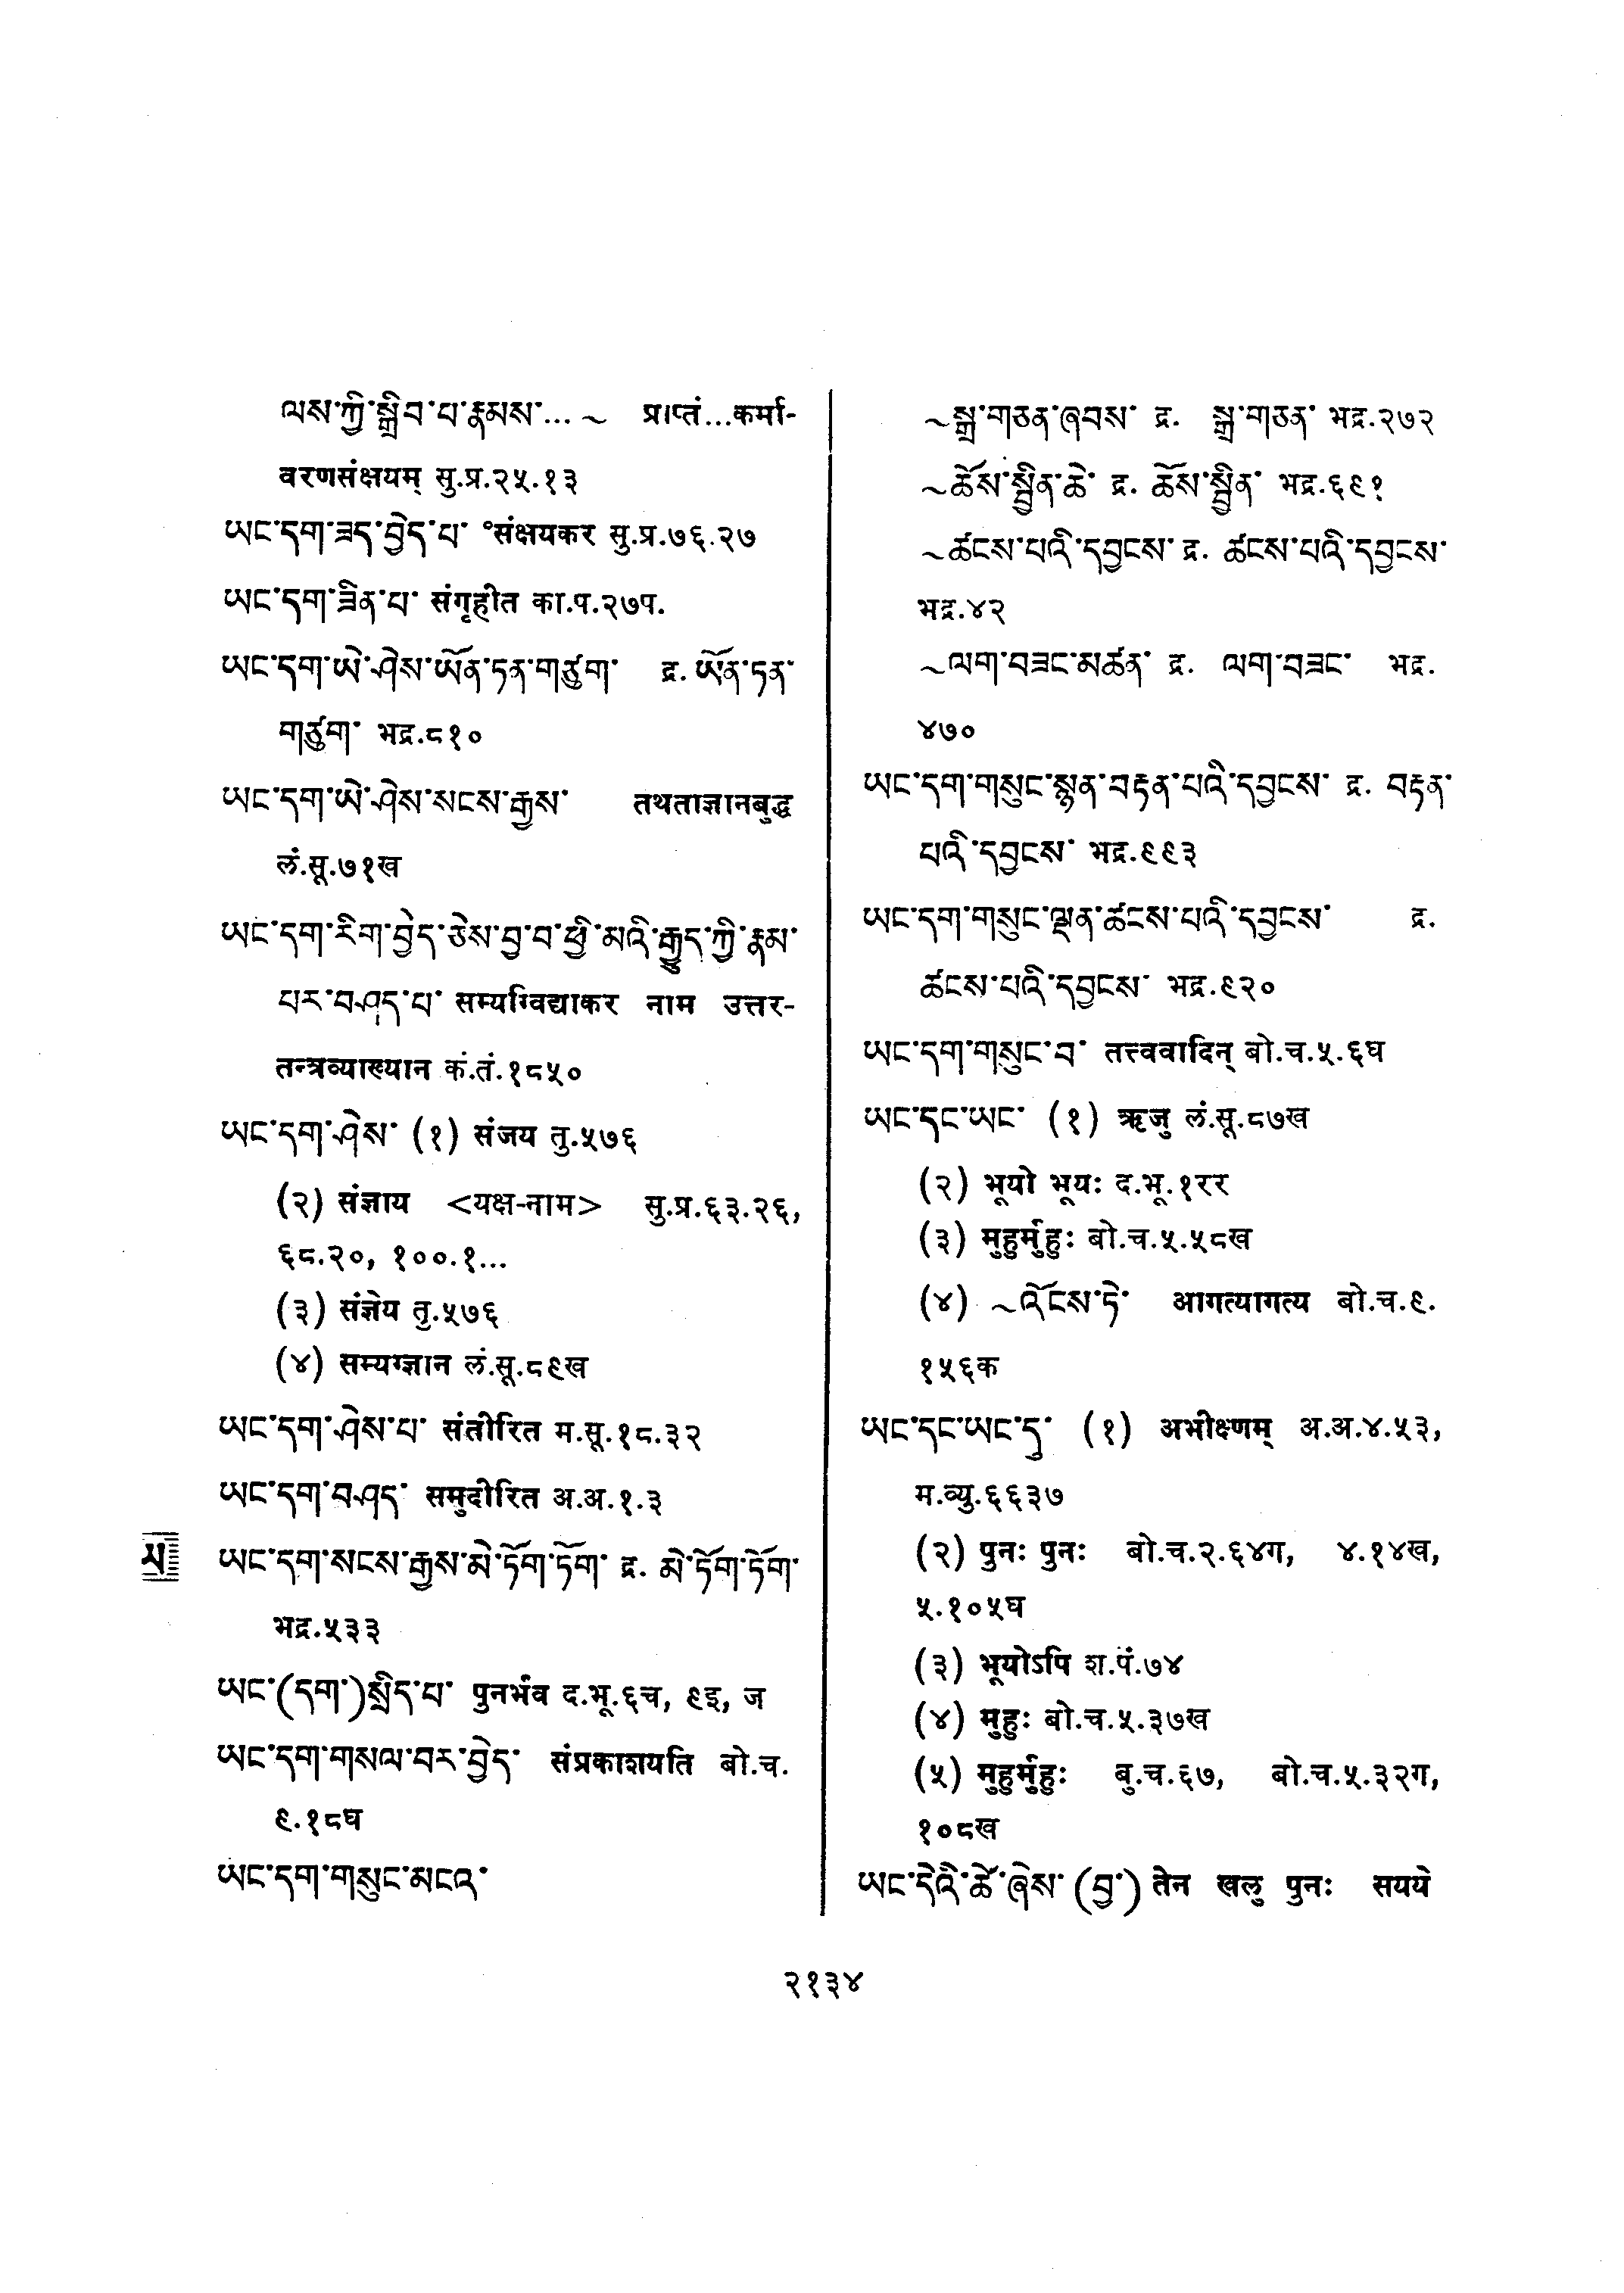 ལས་ཀྱི་སྒྲིབ་པ་རྣམས་... ~ प्राप्तं...कर्मा-
वरणसंक्षयम् सु.प्र.२५.१३
ཡང་དག་ཟད་བྱེད་པ་ °संक्षयकर सु.प्र.७६.२७
ཡང་དག་ཟིན་པ་ संगृहीत का.प.२७प.
ཡང་དག་ཡེ་ཤེས་ཡོན་ཏན་གཙུག་ द्र. ཡོན་ཏན་
གཙུག་ भद्र.८१०
ཡང་དག་ཡེ་ཤེས་སངས་རྒྱས་ तथताज्ञानबुद्ध
लं.सू.७१ख
ཡང་དག་རིག་བྱེད་ཅེས་བྱ་བ་ཕྱི་མའི་རྒྱུད་ཀྱི་རྣམ་
པར་བཤད་པ་ सम्यग्विद्याकर नाम उत्तर-
तन्त्रव्याख्यान कं.तं.१८५०
ཡང་དག་ཤེས་ (१) संजय तु.५७६
(२) संज्ञाय <यक्ष-नाम> सु.प्र.६३.२६,
६८.२०, १००.१...
(३) संज्ञेय तु.५७६
(४) सम्यग्ज्ञान लं.सू.८९ख
ཡང་དག་ཤེས་པ་ संतीरित म.सू.१८.३२
ཡང་དག་བཤད་ समुदीरित अ.अ.१.३
ཡ
ཡང་དག་སངས་རྒྱས་མེ་ཏོག་ཏོག་ द्र. མེ་ཏོག་ཏོག་
भद्र.५३३
ཡང་(དག་)སྲིད་པ་ पुनर्भव द.भू.६च, ९इ, ज
ཡང་དག་གསལ་བར་བྱེད་ संप्रकाशयति बो.च.
९.१८घ
ཡང་དག་གསུང་མངའ་
~སྒྲ་གཅན་ཞབས་ द्र. སྒྲ་གཅན་ भद्र.२७२
~ཆོས་སྦྱིན་ཆེ་ द्र. ཆོས་སྦྱིན་ भद्र.६९१
~ཚངས་པའི་དབྱངས་ द्र. ཚངས་པའི་དབྱངས་
भद्र.४२
~ལག་བཟང་མཚན་ द्र. ལག་བཟང་ भद्र.
४७०
ཡང་དག་གསུང་སྙན་བརྟན་པའི་དབྱངས་ द्र. བརྟན་
པའི་དབྱངས་ भद्र.९९३
ཡང་དག་གསུང་ལྡན་ཚངས་པའི་དབྱངས་ द्र.
ཚངས་པའི་དབྱངས་ भद्र.९२०
ཡང་དག་གསུང་བ་ तत्त्ववादिन् बो.च.५.६घ
ཡང་དང་ཡང་ (१) ऋजु लं.सू.८७ख
(२) भूयो भूयः द.भू.१रर
(३) मुहुर्मुहुः बो.च.५.५८ख
(४) ~འོངས་ཏེ་ आगत्यागत्य बो.च.९.
१५६क
ཡང་དང་ཡང་དུ་ (१) अभीक्ष्णम् अ.अ.४.५३,
म.व्यु.६६३७
(२) पुनः पुनः बो.च.२.६४ग, ४.१४ख,
५.१०५घ
(३) भूयोऽपि श.पं.७४
(४) मुहुः बो.च.५.३७ख
(५) मुहुर्मुहुः बु.च.६७, बो.च.५.३२ग,
१०८ख
ཡང་དེའི་ཚེ་ཞེས་(བྱ་) तेन खलु पुनः सयये
२१३४